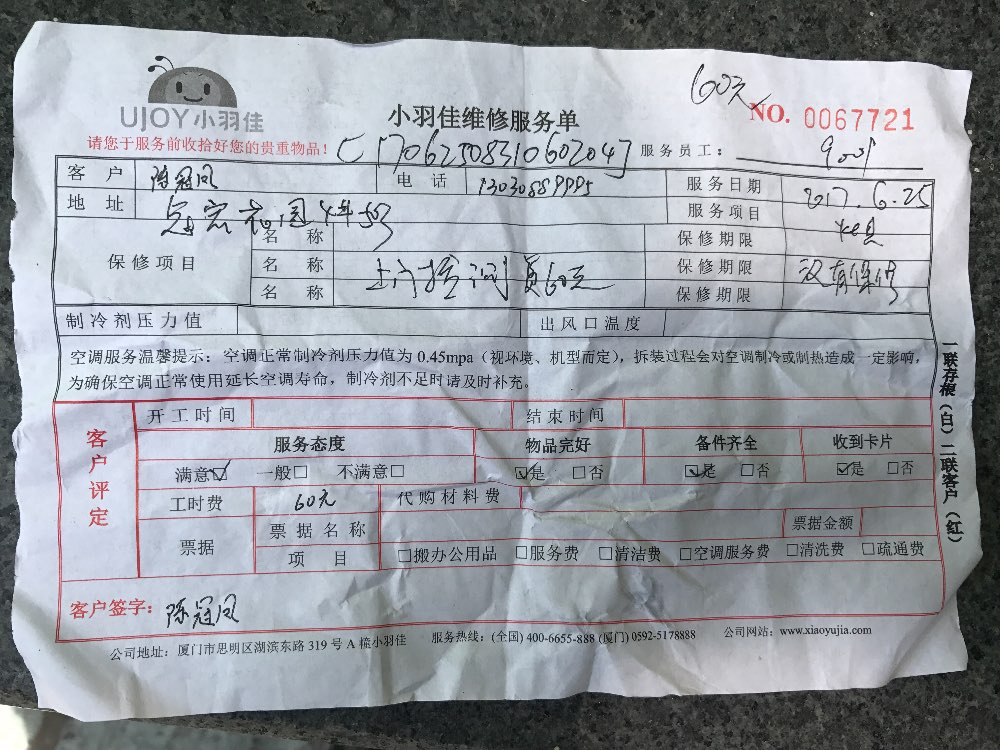 60元
UJOY小羽佳
小羽佳维修服务单
NO. 0067721
请您于服务前收拾好您的贵重物品!
C17062508310602047
服务员工: 9001
客户 陈冠凤 电话 服务日期 2017.6.25
地址 服务项目
名称 保修期限
保修项目 名称 60元 保修期限 没有保修
名称 保修期限
制冷剂压力值 出风口温度
空调服务温馨提示:空调正常制冷剂压力值为 0.45mpa(视环境、机型而定),拆装过程会对空调制冷或制热造成一定影响,
为确保空调正常使用延长空调寿命,制冷剂不足时请及时补充。
一联存根(白)二联客户(红)
客户评定
开工时间 结束时间
服务态度 物品完好 备件齐全 收到卡片
满意☑ 一般□ 不满意□ ☑是 □否 ☑是 □否 ☑是 □否
工时费 60元 代购材料费
票据 票据名称 票据金额
项目 □搬办公用品 □服务费 □清洁费 □空调服务费 □清洗费 □疏通费
客户签字: 陈冠凤
公司地址:厦门市思明区湖滨东路 319 号 A 梯小羽佳 服务热线:(全国) 400-6655-888 (厦门) 0592-5178888 公司网站:www.xiaoyujia.com